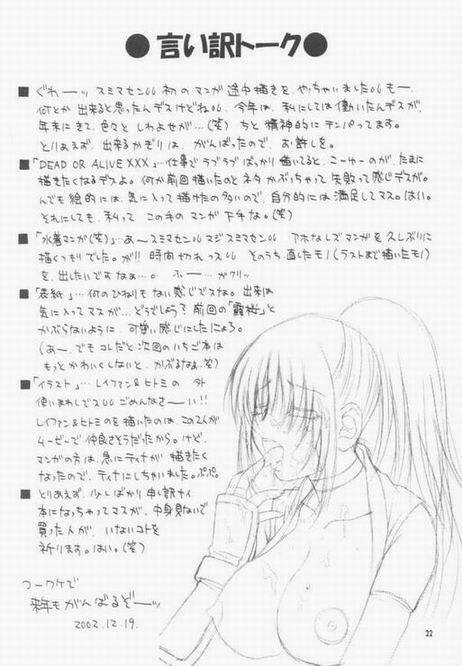 ● 言い訳トーク ●
■ ぐわーッ スミマセン 初のマンガ途中描きを やっちゃいました もー
何とか出来ると思ったんデスけどね 今年は、私にしては働いたんデスが、
年末にきて、色々と しわよせが…(笑) ちと精神的にテンパってます。
とりあえず、出来るかぎりは、がんばったので、お許しを。
■ 「DEAD OR ALIVE XXX」…仕事で ラブラブばっかり描いてると、こーゆーのが、たまに
描きたくなるデスよ。何か前回描いたのと ネタ かぶっちゃって 失敗って感じデスが。
んでも絵的には、気に入って描けたの多いので、自分的には満足してマス。はい。
それにしても、私って この手のマンガ 下手な。(笑)
■ 「水着マンガ(笑)」…あースミマセン マジ スミマセン アホなレズマンガを 久しぶりに
描くつもりでした。が!! 時間切れっス そのうち、直したモノ(ラストまで描いたモノ)
を 出したいですなぁ…。 ふー…ガクッ
■ 「表紙」…何のひねりもない感じでスな。出来は
気に入ってマスが… どうでしょう? 前回の「霞桜」と
かぶらないように、可愛い感じにしたにょろ。
(あー、でもコレだと次回のいちご本は
もっとかわいくしないと、かぶるなぁ、笑)
■ 「イラスト」… レイファン&ヒトミの 外
使いまわしでス ごめんなさーい!!
レイファン&ヒトミのを描いたのは、この2人が
ムービーで仲良さそうだったから。けど、
マンガの方は、急にティナが 描きたく
なったので、ティナにしちゃいました。ぷぷ。
■ とりあえず、少しばかり申し訳ナイ
本になっちゃってマスが、中身見ないで
買った人が、いないコトを
祈ります。はい。(笑)
つーワケで
来年もがんばるぞーッ
2002.12.19.
22